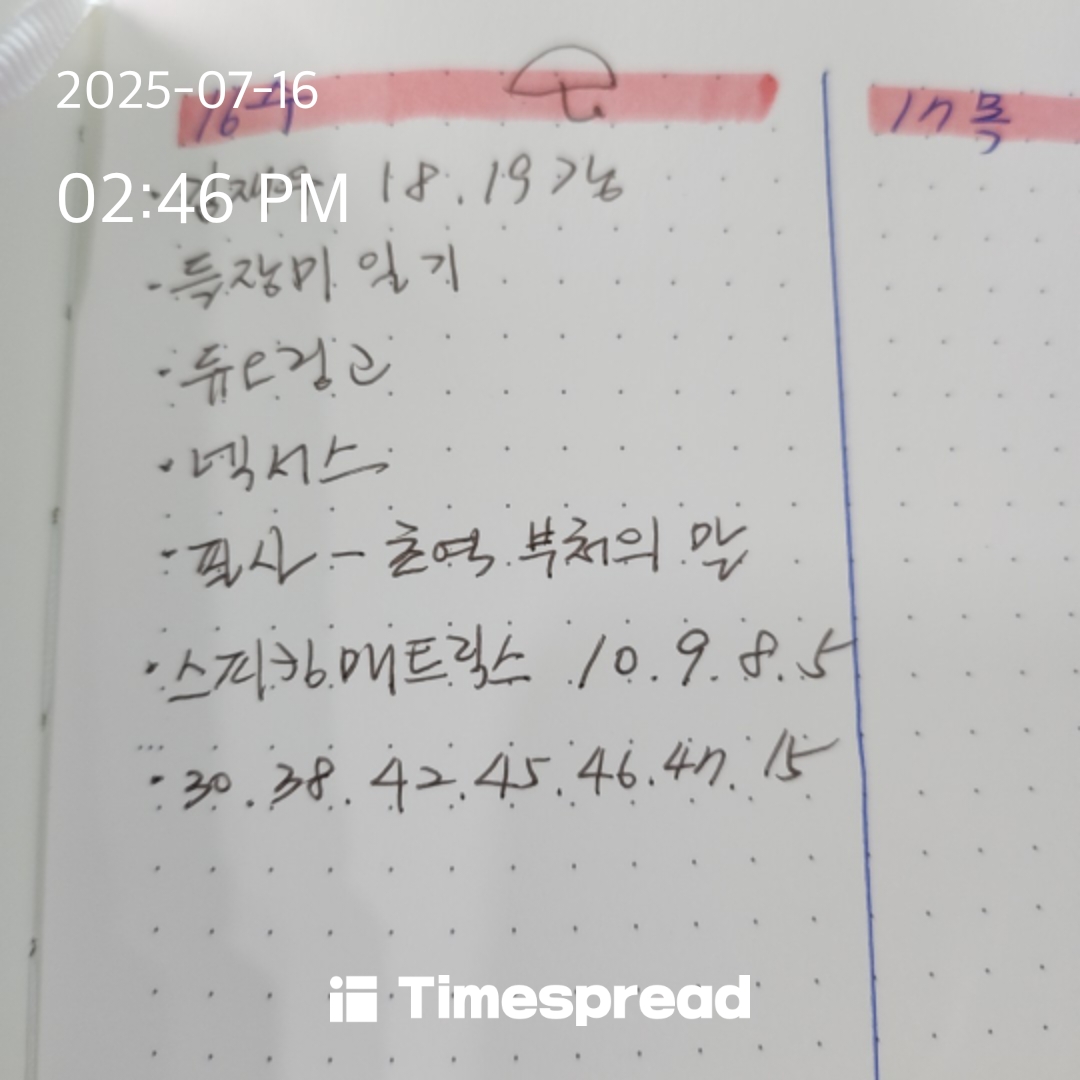 2025-07-16
16수
17목
02:46 PM
18.19강
·득장미 일기
·듀오링고
·넥서스
·필사-초역 부처의 말
·스피킹매트릭스 10.9.8.5
·30.38.42.45.46.47.15
Timespread